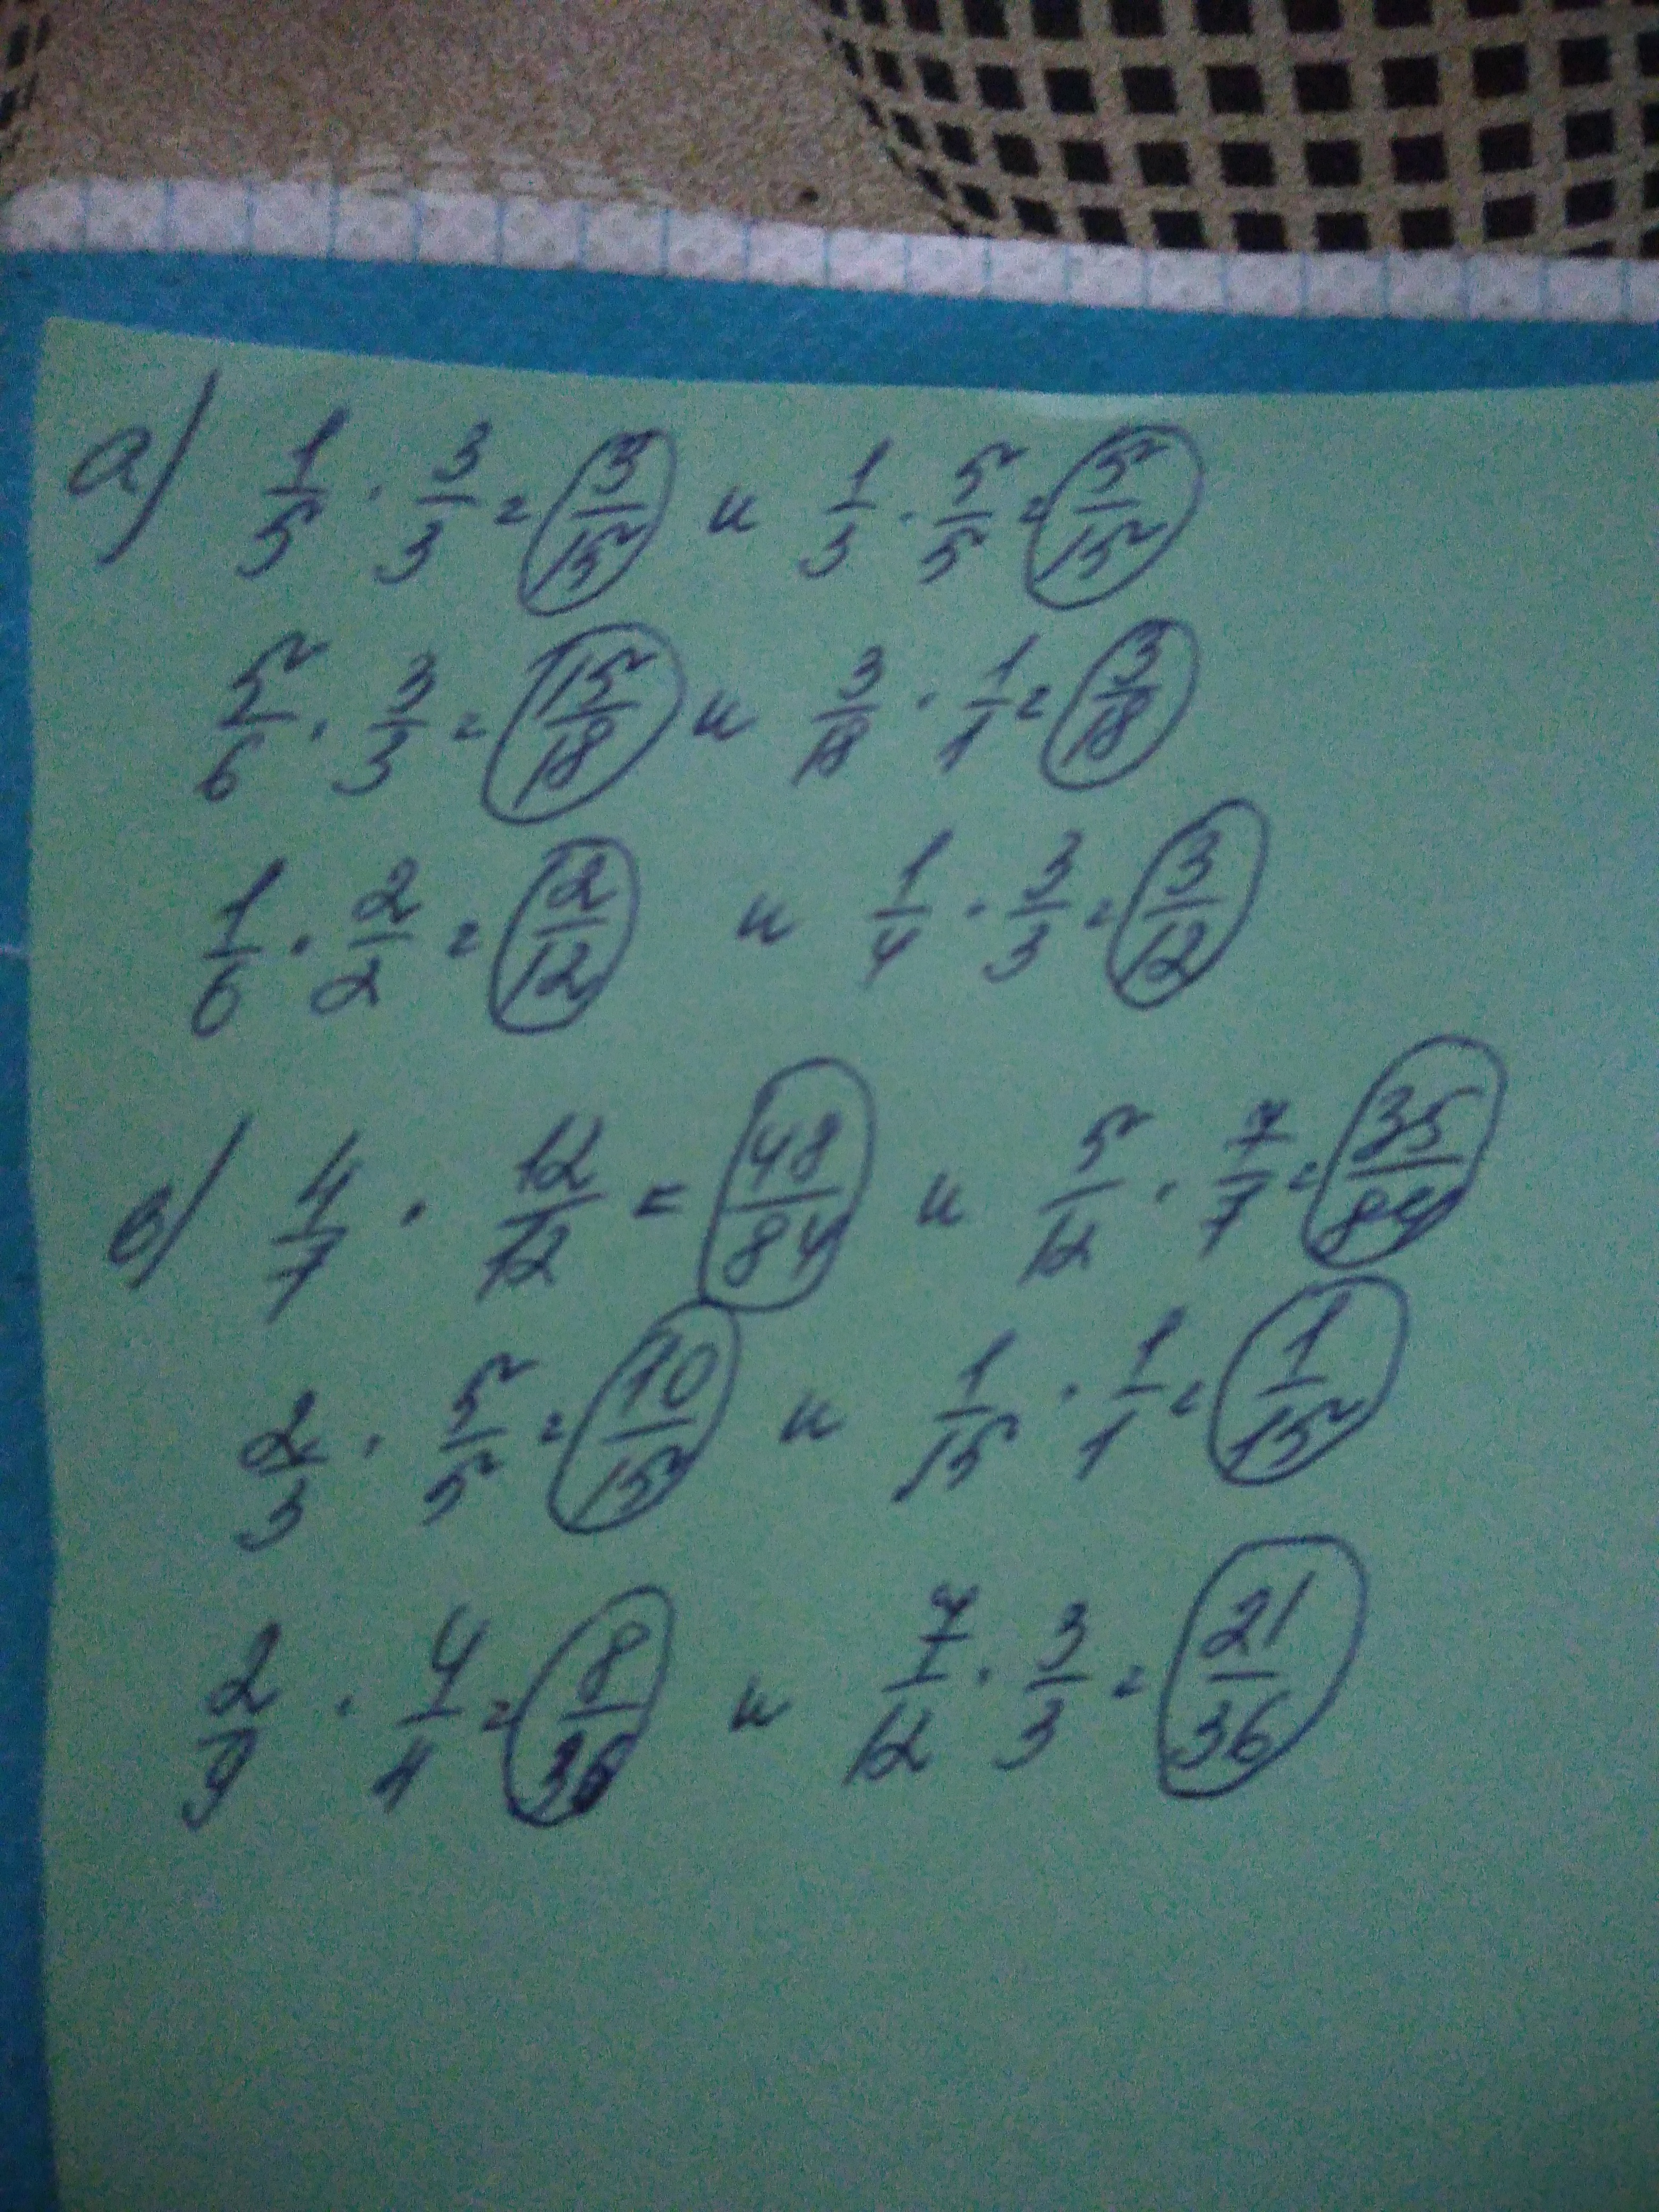 а) 1/5 · 3/3 = 3/15 и 1/3 · 5/5 = 5/15
5/6 · 3/3 = 15/18 и 3/18 · 1/1 = 3/18
1/6 · 2/2 = 2/12 и 1/4 · 3/3 = 3/12
в) 4/7 · 12/12 = 48/84 и 5/12 · 7/7 = 35/84
2/3 · 5/5 = 10/15 и 1/15 · 1/1 = 1/15
2/9 · 4/4 = 8/36 и 7/12 · 3/3 = 21/36